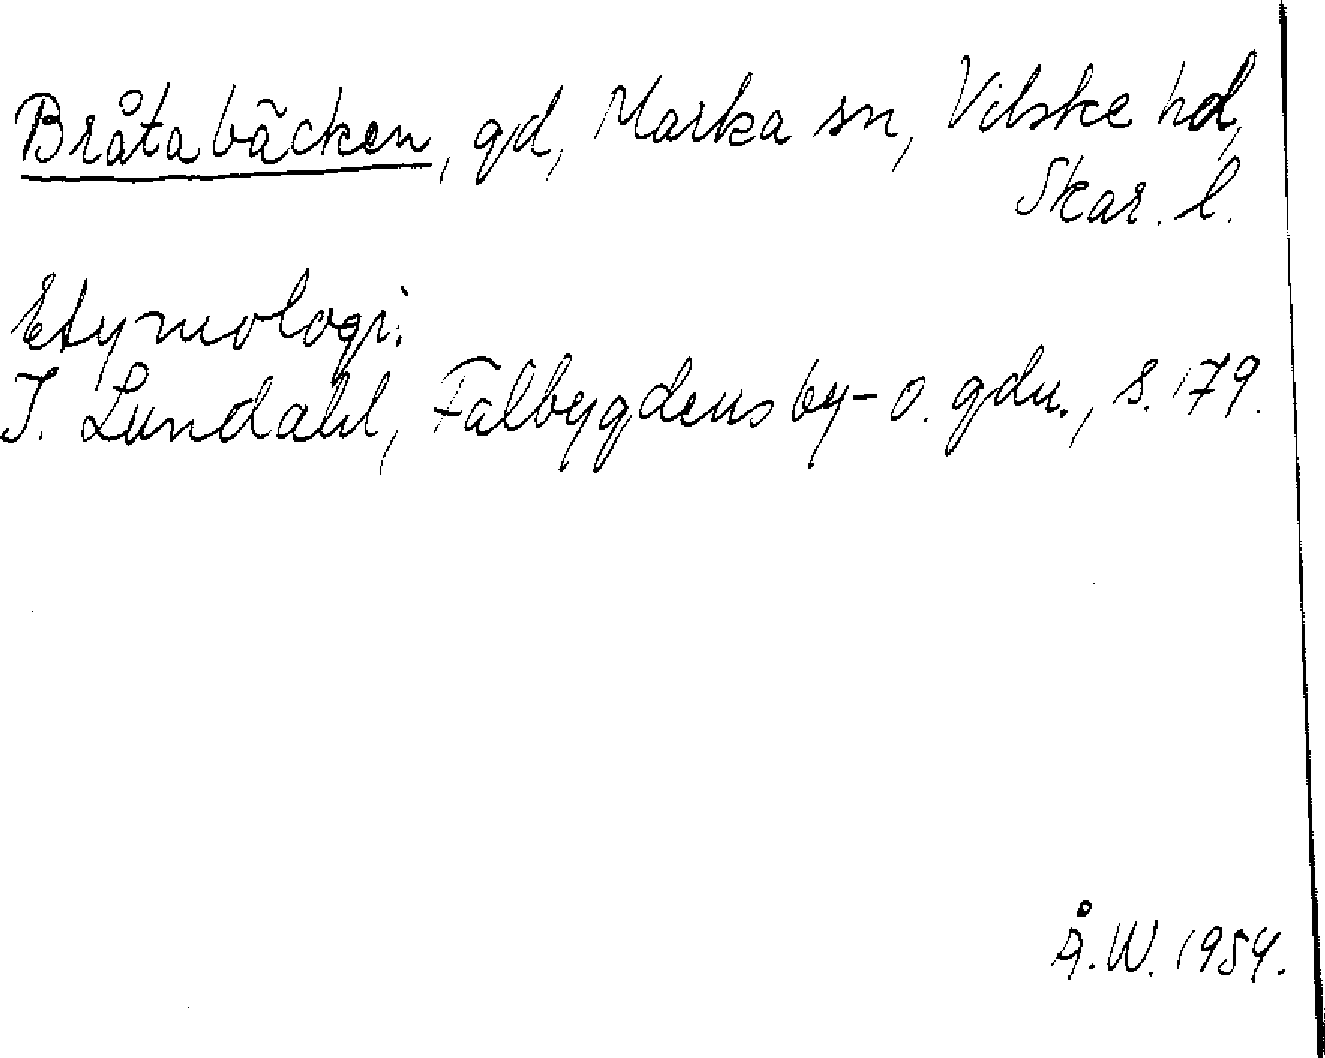 Bråtabäcken, gd, Marka sn, Vilske hd,
Skar. l.
Etymologi.
I. Lundahl, Falbygdens by- o. gdn., s. 179.
Å.W. 1954.